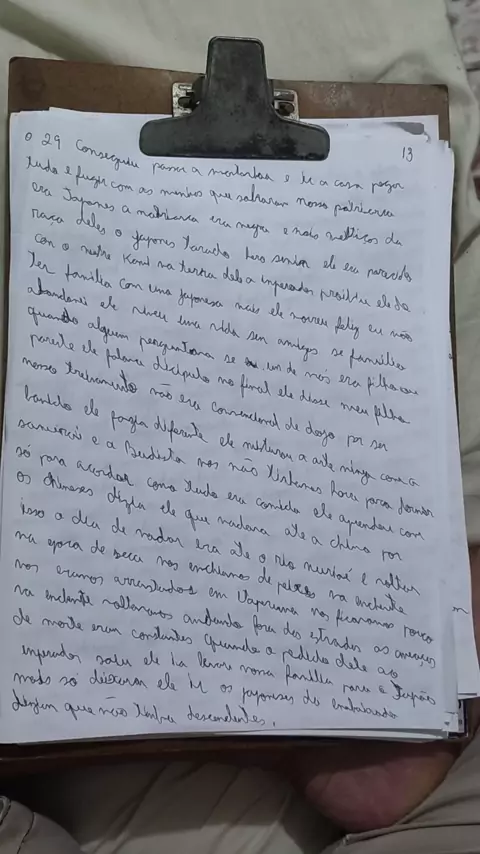 13
o 29 Conseguiu passar a montanha e ir a casa pegar
tudo e fugir com as meninos que sobraram nosso patriarca
era Japones a matriarca era negra e nois mestiços da
raça deles o Japones Taracho era senior ele era parecido
con o mestre Kami na terra dele o imperador proibiu ele de
ter familia com uma japonesa mais ele morreu feliz eu não
abandonei ele viveu una vida sen amigos se familia
quando alguem perguntava se un de nos era filho ou
parente ele falava discipulo no final ele disse meu filho
nosso treinamento não era convencional de dojo por ser
banido ele fazia diferente ele misturou a arte ninja com a
samurai e a Budista nos não tinhamos hora para dormir
só para acordar como tudo era corrido ele aprendeu com
os chineses dizia ele que nadava ate a china por
isso o dia de nadar era ate o rio muriaé e voltar
na epoca de seca nos enchiamos de peixes na enchente
nos eramos arrastados em Itaperuna nos ficavamos pouco
na enchente voltavamos andando fora das estradas as ameaças
de morte eram constantes Quando a pedido dele ao
imperador saiu ele ia levar nossa familia para o Japão
mads só deixaram ele ir os japoneses da embaixador
diziam que não tinha descendentes.